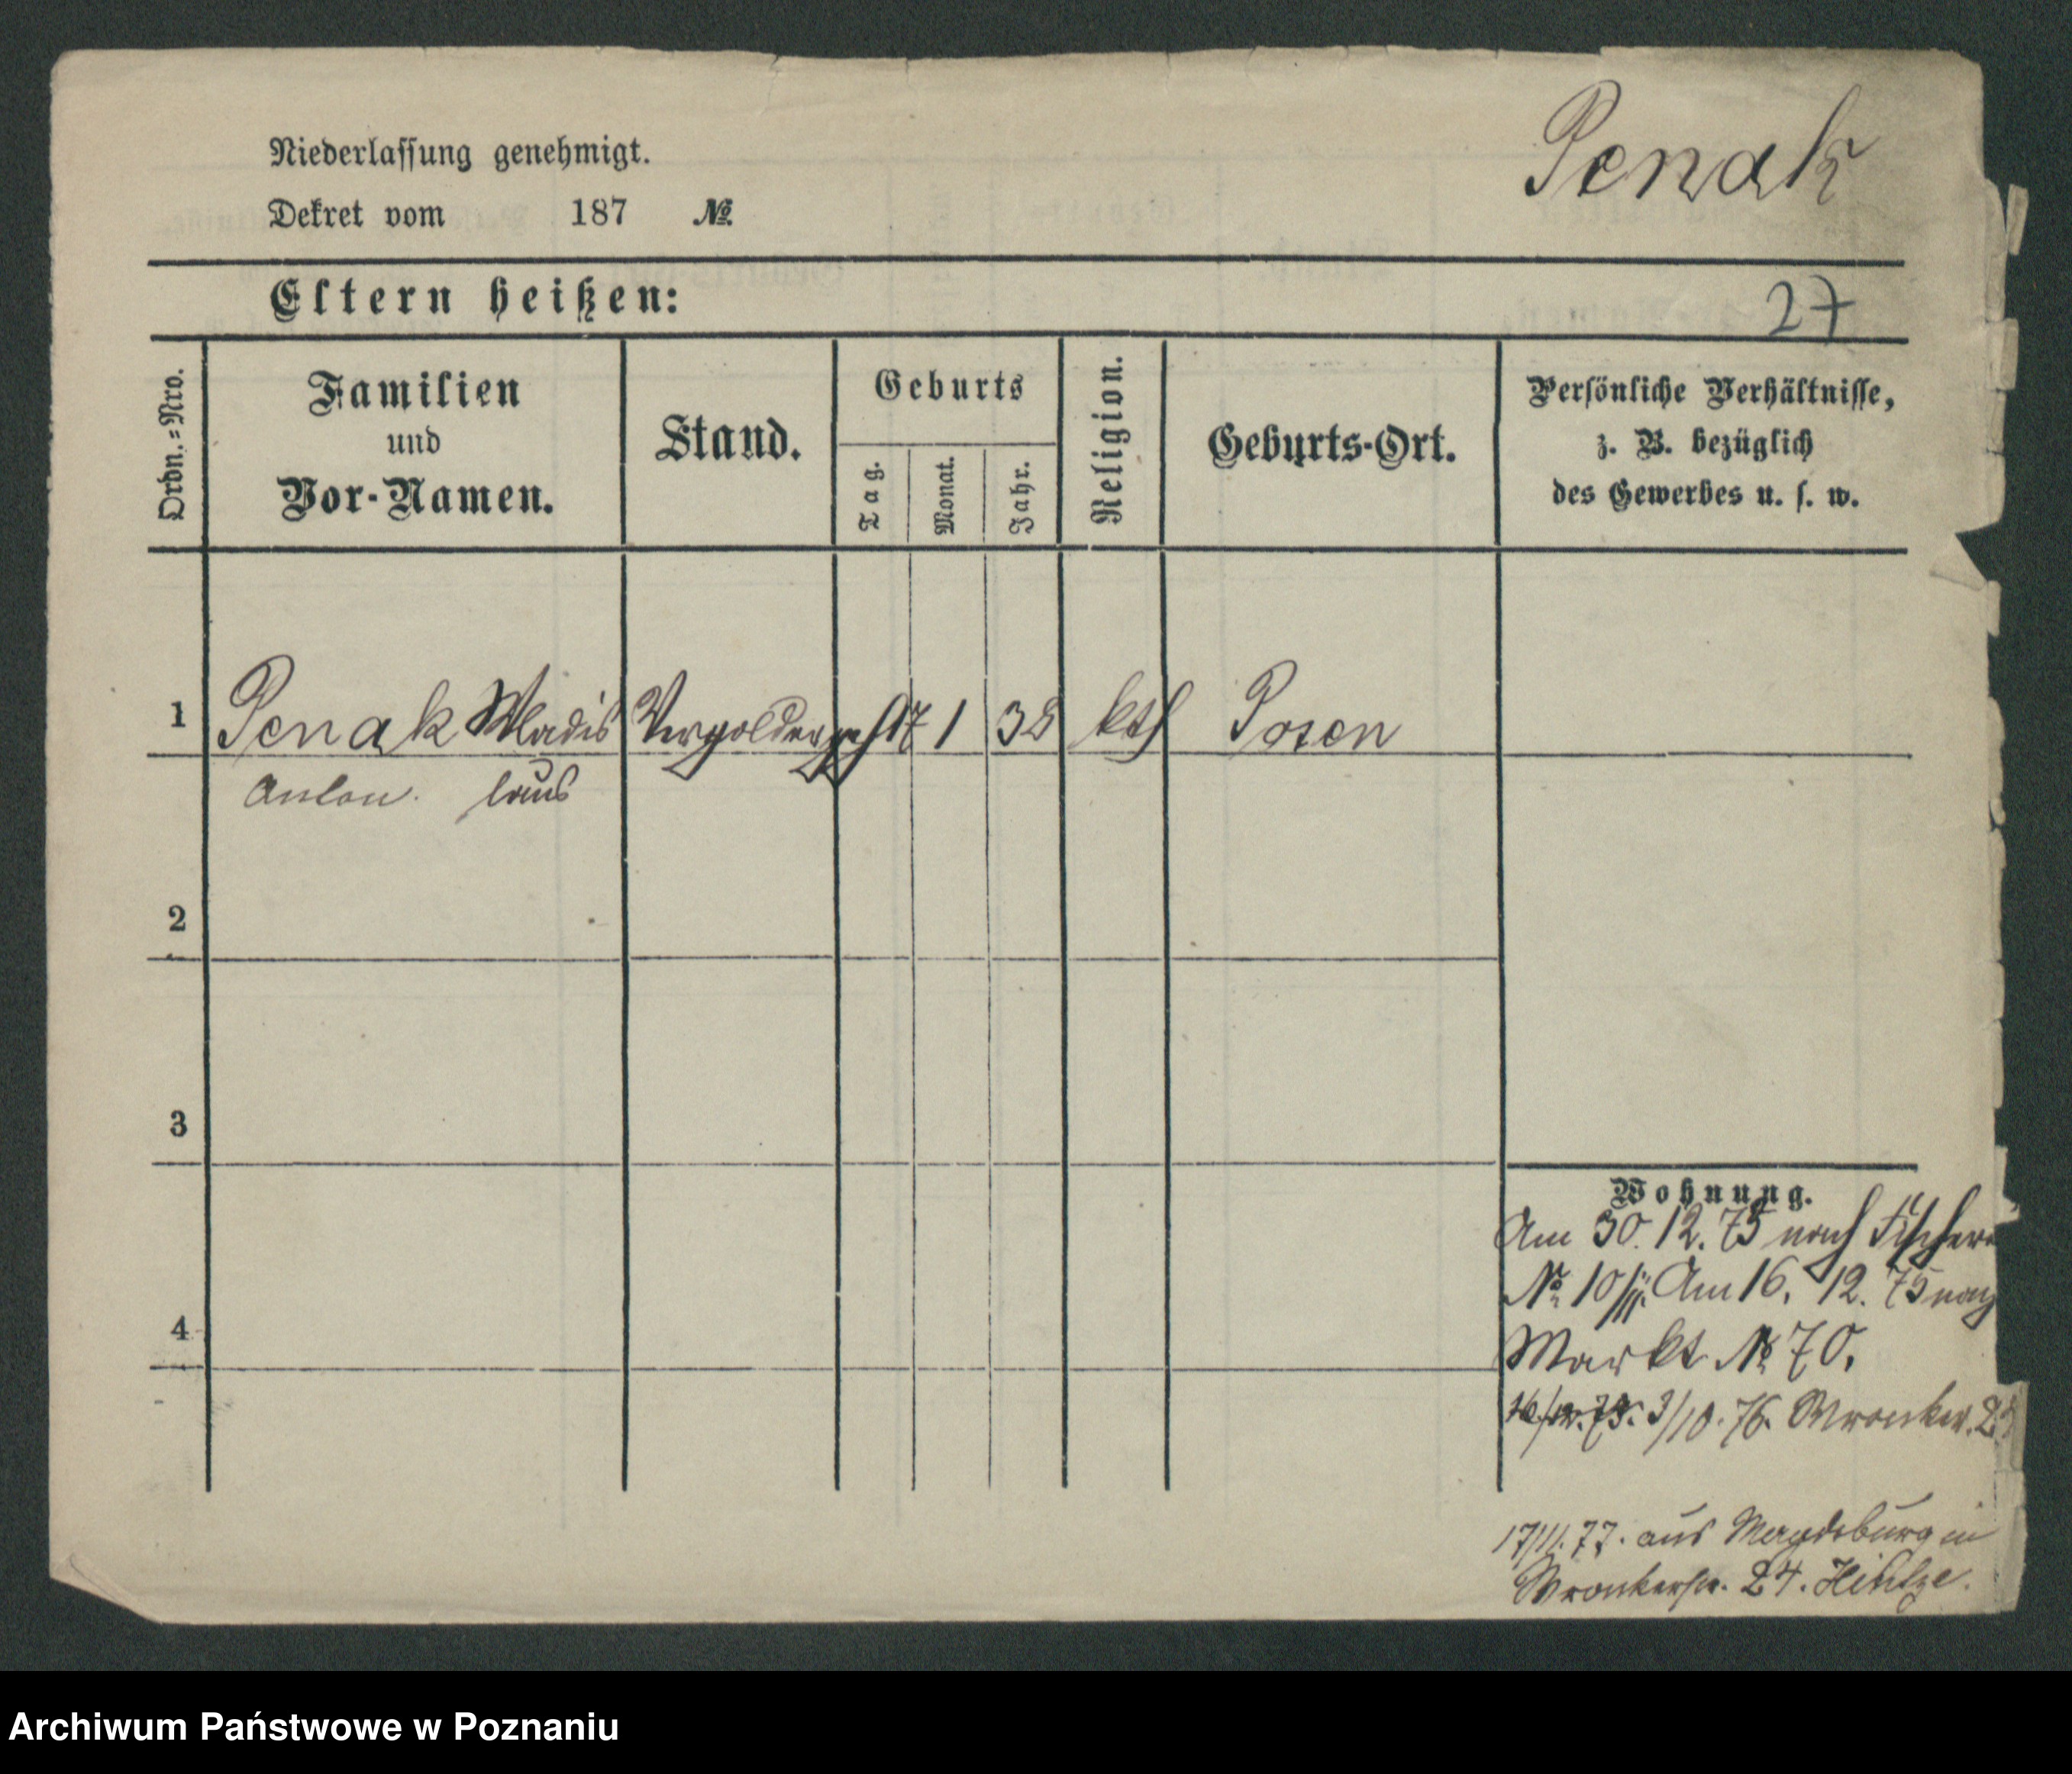 Penak
Niederlassung genehmigt.
Dekret vom 187 №
Eltern heißen:
27
Ordn.=Nro.
Familien
und
Vor-Namen.
Stand.
Geburts
Tag.
Monat.
Jahr.
Religion.
Geburts-Ort.
Persönliche Verhältnisse,
z. B. bezüglich
des Gewerbes u. s. w.
1 Penak Wladis Vergolder 17 1 38 kth Posen
Anton. laus
2
3
4
Wohnung.
Am 30. 12. 75 nach Fischerei
№ 10/II. Am 16. 12. 75 nach
Markt № 70.
16/12. 75. 3/10. 76. Wronker.
17/11. 77. aus Magdeburg in
Wronkerstr. 24. Hintze.
Archiwum Państwowe w Poznaniu